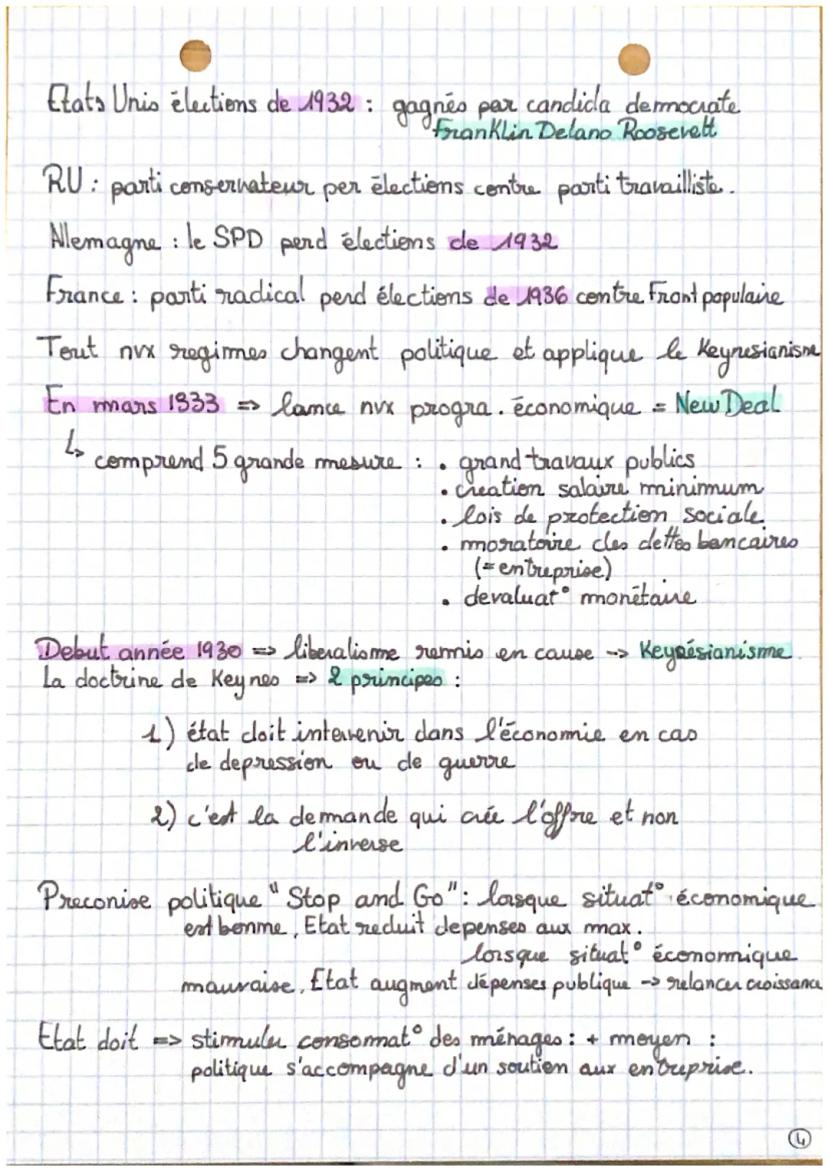 Etats Unis élections de 1932 : gagnés par candida democrate
Franklin Delano Roosevelt
RU : parti conservateur per élections contre parti travailliste.
Allemagne : le SPD perd élections de 1932
France : parti radical perd élections de 1936 contre Front populaire
Tout nvx regimes changent politique et applique le Keynesianisme
En mars 1933 => lance nvx progra. économique = New Deal
↳ comprend 5 grande mesure : • grand travaux publics
• creation salaire minimum
• lois de protection sociale
• moratoire des dettes bancaires
(= entreprise)
• devaluat° monétaire
Debut année 1930 => liberalisme remis en cause -> Keynésianisme
La doctrine de Keynes => 2 principes :
1) état doit intervenir dans l'économie en cas
de depression ou de guerre
2) c'est la demande qui crée l'offre et non
l'inverse
Preconise politique "Stop and Go" : lorsque situat° économique
est bonne, Etat reduit depenses aux max.
lorsque situat° économique
mauvaise, Etat augment dépenses publique -> relancer croissance
Etat doit => stimuler consommat° des ménages : + moyen :
politique s'accompagne d'un soutien aux entreprise.
4